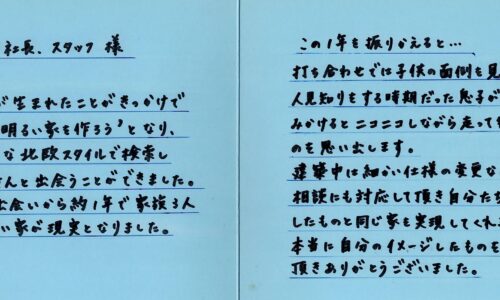 社長、スタッフ 様
が生まれたことがきっかけで
明るい家を作ろう’となり、
な北欧スタイルで検索し
さんと出会うことができました。
出会いから約1年で家族3人
い家が現実となりました。
この1年を振りかえると…
打ち合わせでは子供の面倒を見
人見知りをする時期だった息子が
みかけるとニコニコしながら走って
のを思い出します。
建築中は細かい仕様の変更な
相談にも対応して頂き自分たち
したものと同じ家を実現してくれ
本当に自分のイメージしたものを
頂きありがとうございました。